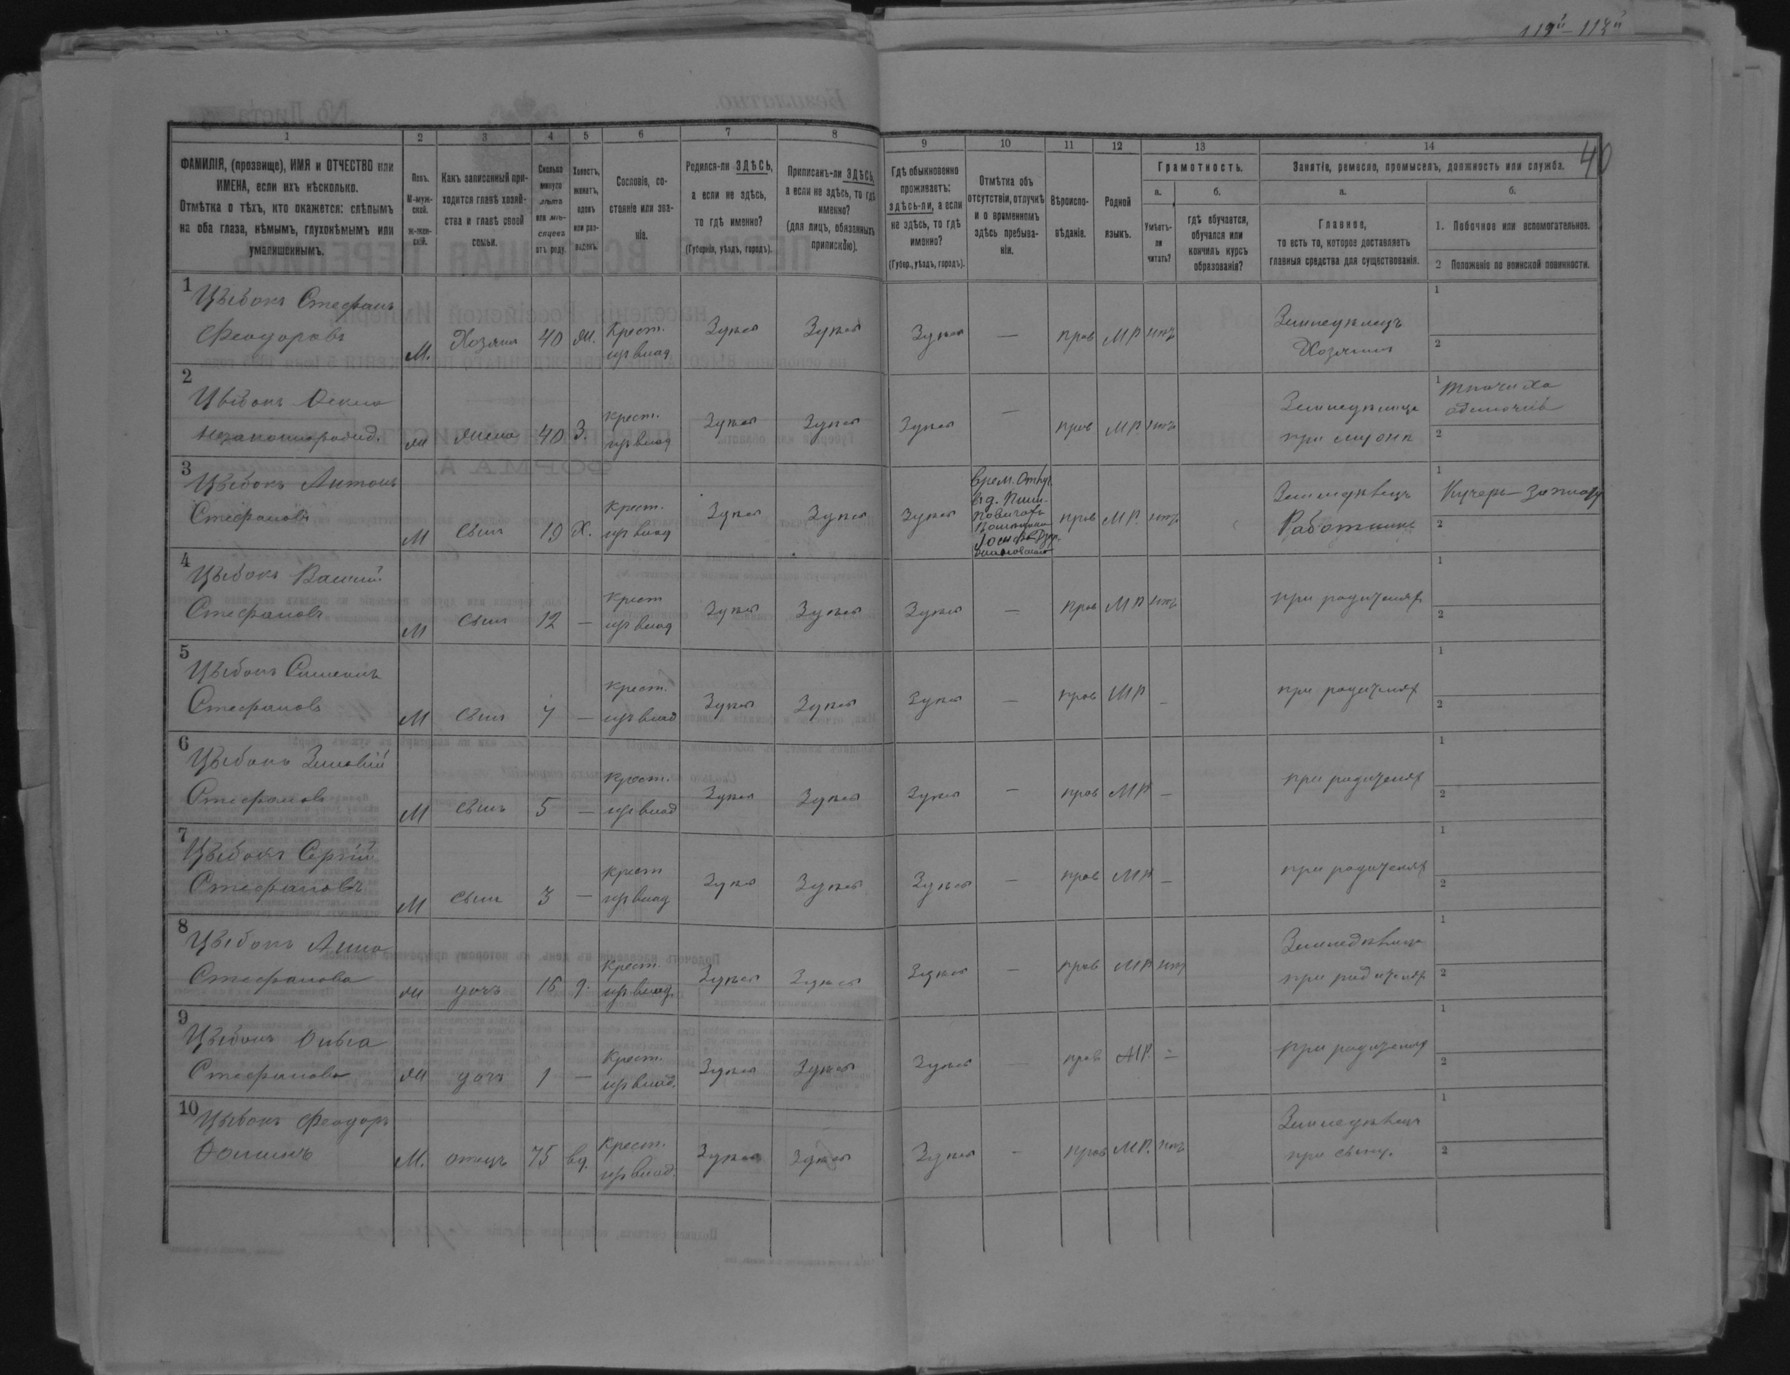 112й–113й
40
1
2
3
4
5
6
7
8
9
10
11
12
13
14
ФАМИЛІЯ, (прозвище), ИМЯ и ОТЧЕСТВО или
ИМЕНА, если ихъ нѣсколько.
Отмѣтка о тѣхъ, кто окажется: слѣпымъ
на оба глаза, нѣмымъ, глухонѣмымъ или
умалишеннымъ.
Полъ.
М-муж-
ской.
Ж-жен-
скій.
Какъ записанный при-
ходится главѣ хозяй-
ства и главѣ своей
семьи.
Сколько
минуло
лѣтъ
или мѣ-
сяцевъ
отъ роду.
Холостъ,
женатъ,
вдовъ
или раз-
веденъ.
Сословіе, со-
стояніе или зва-
ніе.
Родился-ли ЗДѢСЬ,
а если не здѣсь,
то гдѣ именно?
(Губернія, уѣздъ, городъ).
Приписанъ-ли ЗДѢСЬ,
а если не здѣсь, то гдѣ
именно?
(для лицъ, обязанныхъ
припискою).
Гдѣ обыкновенно
проживаетъ:
здѣсь-ли, а если
не здѣсь, то гдѣ
именно?
(Губер., уѣздъ, городъ).
Отмѣтка объ
отсутствіи, отлучкѣ
и о временномъ
здѣсь пребыва-
ніи.
Вѣроиспо-
вѣданіе.
Родной
языкъ.
Грамотность.
а.
Умѣетъ-
ли
читать?
б.
гдѣ обучается,
обучался или
кончилъ курсъ
образованія?
Занятіе, ремесло, промыселъ, должность или служба.
а.
Главное,
то есть то, которое доставляетъ
главныя средства для существованія.
б.
1. Побочное или вспомогательное.
2 Положеніе по воинской повинности.
1 Цыбокъ Стефанъ
Феодоровъ М. Хозяинъ 40 Ж. Крест. изъ влад. Здѣсь Здѣсь Здѣсь — прав МР нѣтъ Земледѣлецъ
Хозяинъ
1
2
2 Цыбокъ
незаконнорожд. Ж жена 40 З. Крест. изъ влад Здѣсь Здѣсь Здѣсь — прав МР нѣтъ
1 Ткачиха
одиночка
2
3 Цыбокъ Антонъ
Стефановъ М Сынъ 19 Х. Крест. изъ влад Здѣсь Здѣсь Здѣсь прав МР. нѣтъ Земледѣлецъ
Работникъ
1 Кучеръ
2
4 Цыбокъ Василій
Стефановъ М Сынъ 12 — Крест изъ влад Здѣсь Здѣсь Здѣсь — прав МР нѣтъ при родителяхъ
1
2
5 Цыбокъ Симеонъ
Стефановъ М Сынъ 7 — Крест. изъ влад Здѣсь Здѣсь Здѣсь — прав МР — при родителяхъ
1
2
6 Цыбокъ Зиновій
Стефановъ М Сынъ 5 — Крест. изъ влад Здѣсь Здѣсь Здѣсь — прав МР — при родителяхъ
1
2
7 Цыбокъ Сергій
Стефановъ М Сынъ 3 — Крест изъ влад Здѣсь Здѣсь Здѣсь — прав МР — при родителяхъ
1
2
8 Цыбокъ Анна
Стефанова Ж дочь 16 Крест. изъ влад. Здѣсь Здѣсь Здѣсь — прав МР нѣтъ
при родителяхъ
1
2
9 Цыбокъ Ольга
Стефанова Ж дочь 1 — Крест. изъ влад. Здѣсь Здѣсь Здѣсь — прав МР. — при родителяхъ
1
2
10 Цыбокъ Феодоръ
М. отецъ 75 вд. Крест. изъ влад. Здѣсь Здѣсь Здѣсь — прав МР. нѣтъ Земледѣлецъ
при сынѣ.
1
2